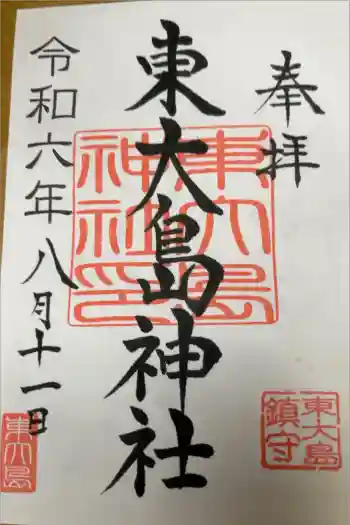 奉拝
東大島神社
令和六年八月十一日
東大島神社印
東大島
鎮守
東大島